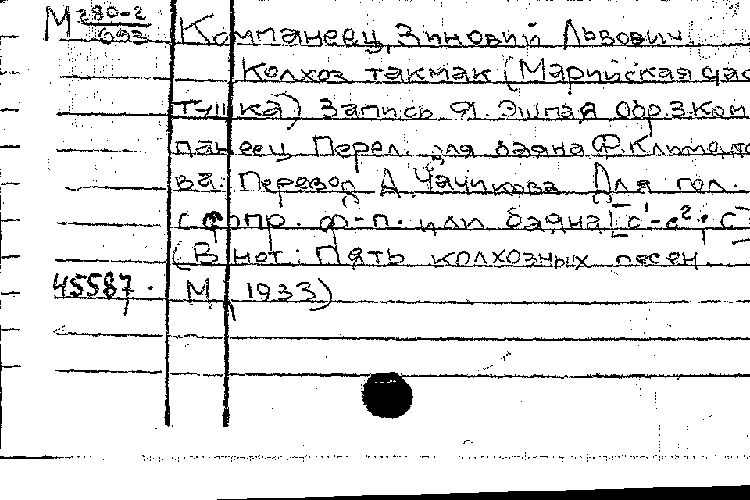 М 280-2/693 Компанеец, Зиновий Львович.
Колхоз такмак (Марийская час
тушка) Запись Я. Эшпая Обр. З. Ком
панеец Перел. для баяна Ф. Климент
ва. Перевод А. Чачикова Для гол.
с сопр. ф-п. или баяна [c¹-e²; c
(В нот: Пять колхозных песен.
45587. М., 1933)